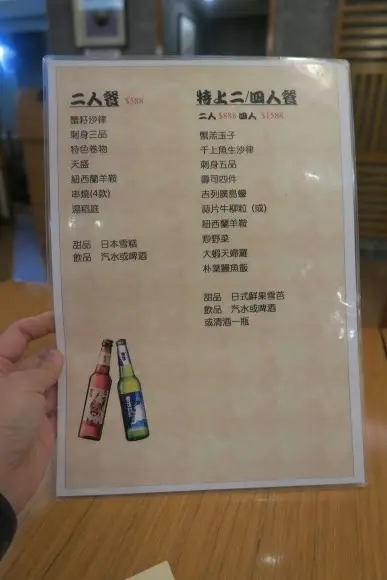 二人餐 $588
蟹籽沙律
刺身三品
特色卷物
天盛
紐西蘭羊鞍
串燒(4款)
湯稻庭
甜品 日本雪糕
飲品 汽水或啤酒
特上二/四人餐
二人 $888 四人 $1588
蟹羔玉子
千上魚生沙律
刺身五品
壽司四件
吉列廣島蠔
蒜片牛柳粒 (或)
紐西蘭羊鞍
炒野菜
大蝦天婦羅
朴葉鰻魚飯
甜品 日式鮮果雪芭
飲品 汽水或啤酒
或清酒一瓶